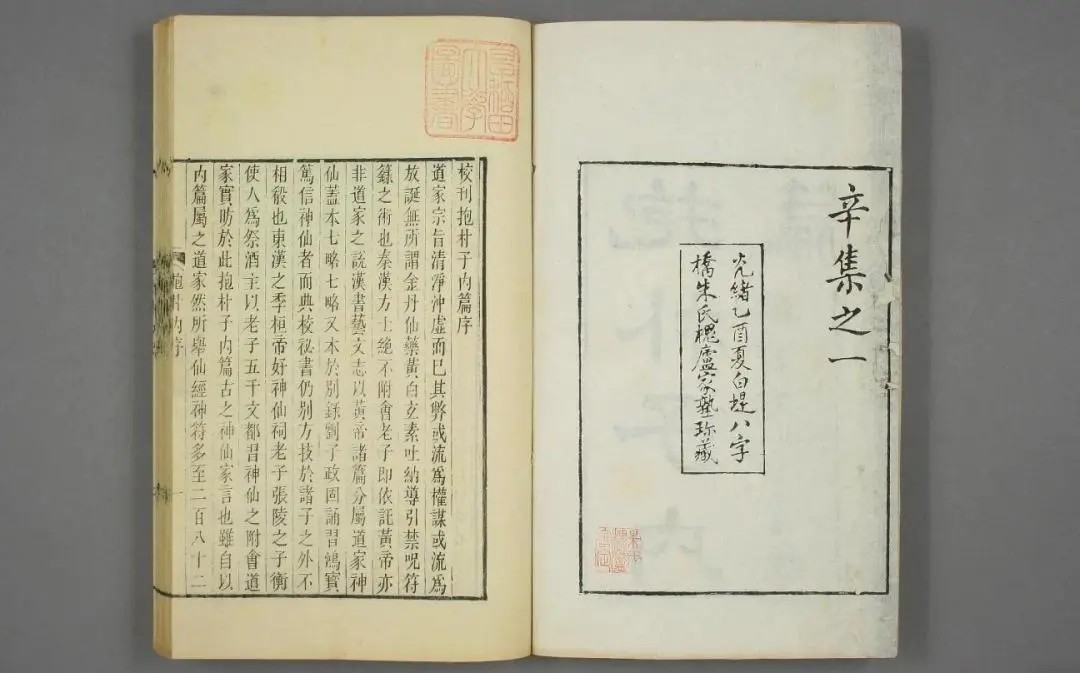 辛集之一
光緒乙酉夏白堤八字
橋朱氏槐廬家塾珍藏
早稲田
大學
圖書
校刊抱朴子内篇序
道家宗旨清淨沖虛而已其弊或流爲權謀或流爲
放誕無所謂金丹仙藥黃白玄素吐納導引禁呪符
籙之術也秦漢方士絶不附會老子即依託黃帝亦
非道家之說漢書藝文志以黃帝諸篇分屬道家神
仙蓋本七略七略又本於別錄劉子政固誦習鴻寶
篤信神仙者而典校祕書仍別方技於諸子之外不
相殽也東漢之季桓帝好神仙祠老子張陵之子衡
使人爲祭酒主以老子五千文都習神仙之附會道
家實昉於此抱朴子内篇古之神仙家言也雖自以
内篇屬之道家然所舉仙經神符多至二百八十二
抱朴内序